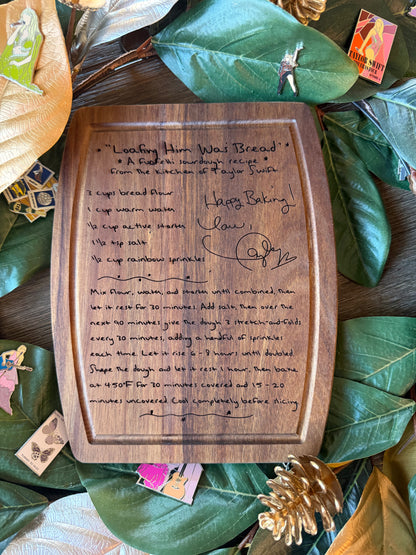 * "Loafing Him Was Bread" *
* A funfetti sourdough recipe *
from the kitchen of Taylor Swift
3 cups bread flour
1 cup warm water
1/2 cup active starter
1 1/2 tsp salt
1/2 cup rainbow sprinkles
Happy Baking!
Love,
Taylor
Mix flour, water, and starter until combined, then
let it rest for 30 minutes. Add salt, then over the
next 90 minutes give the dough 3 stretch-and-folds
every 30 minutes, adding a handful of sprinkles
each time. Let it rise 6-8 hours until doubled.
Shape the dough and let it rest 1 hour, then bake
at 450°F for 30 minutes covered and 15-20
minutes uncovered. Cool completely before slicing.
TAYLOR SWIFT